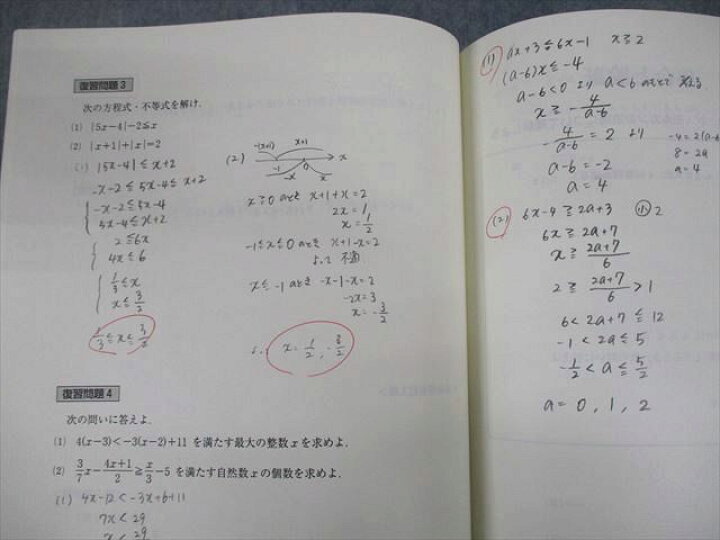 復習問題 3
次の方程式・不等式を解け.
(1) |5x−4|−2≦x
(2) |x+1|+|x|=2
(1) |5x-4| ≦ x+2
-x-2 ≦ 5x-4 ≦ x+2
-x-2 ≦ 5x-4
5x-4 ≦ x+2
2 ≦ 6x
4x ≦ 6
1/3 ≦ x
x ≦ 3/2
1/3 ≦ x ≦ 3/2
(2)
-(x+1) x+1
-1 0 x
-x x
x ≧ 0 のとき x+1+x = 2
2x = 1
x = 1/2
-1 ≦ x ≦ 0 のとき x+1-x = 2
よって 不適
x ≦ -1 のとき -x-1-x = 2
-2x = 3
x = -3/2
x = 1/2, -3/2
復習問題 4
次の問いに答えよ.
(1) 4(x−3)<−3(x−2)+11 を満たす最大の整数 x を求めよ.
(2) 3/7x−4x+1/2≧x/3−5 を満たす自然数 x の個数を求めよ.
(1) 4x-12 < -3x+6+11
7x < 29
x < 29
(1) ax+3 ≦ 6x-1 x ≧ 2
(a-6)x ≦ -4
a-6<0 より a<6 のもとで 考える
x ≧ -4/a-6
-4/a-6 = 2 より
a-6 = -2
a = 4
-4 = 2(a-6
8 = 2a
a = 4
(2) 6x-4 ≧ 2a+3 小 2
6x ≧ 2a+7
x ≧ 2a+7/6
2 ≧ 2a+7/6 > 1
6 < 2a+7 ≦ 12
-1 < 2a ≦ 5
-1/2 < a ≦ 5/2
a = 0, 1, 2